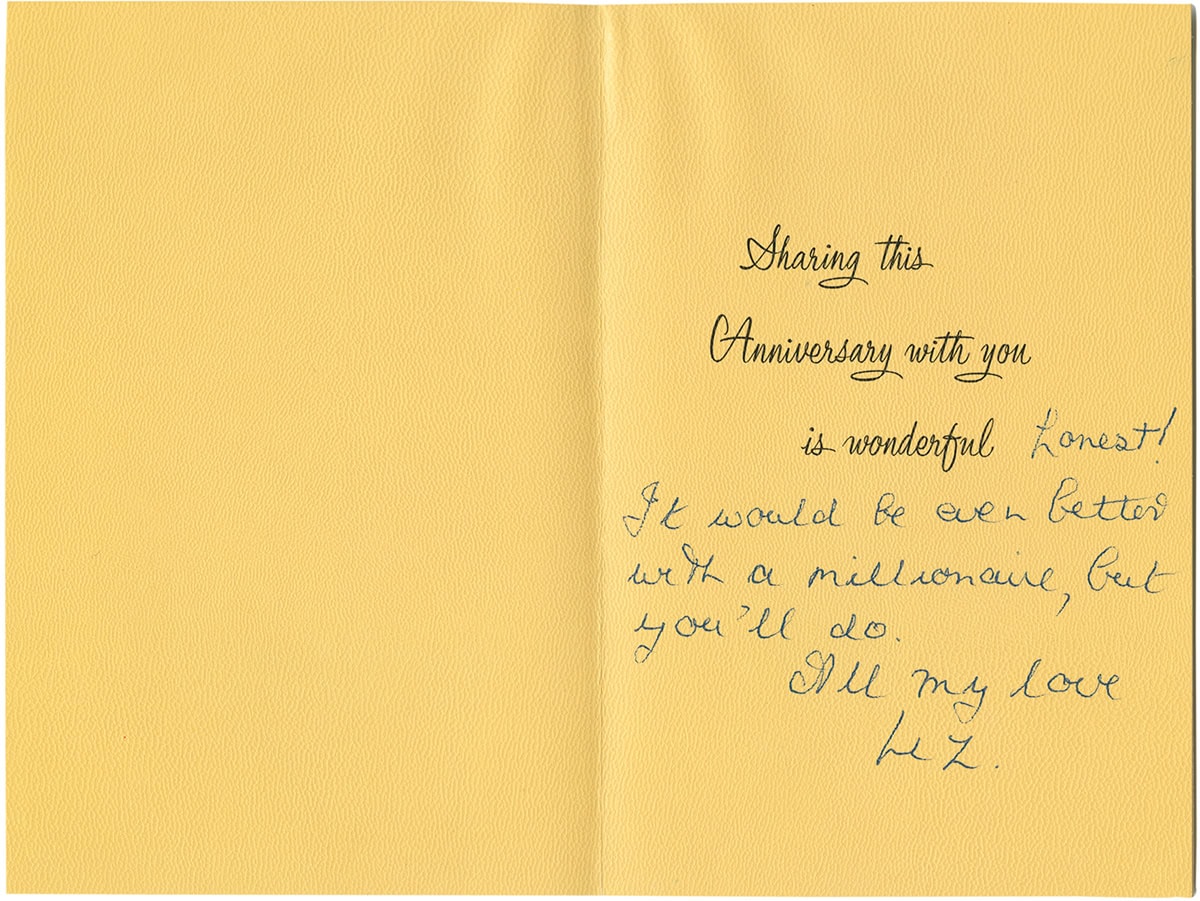 Sharing this
Anniversary with you
is wonderful Honest!
It would be even better
with a millionaire, but
you'll do.
All my love